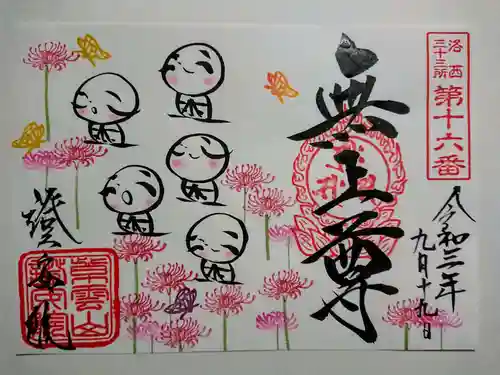 洛西
三十三所
第十六番
無上尊
令和三年
九月十九日